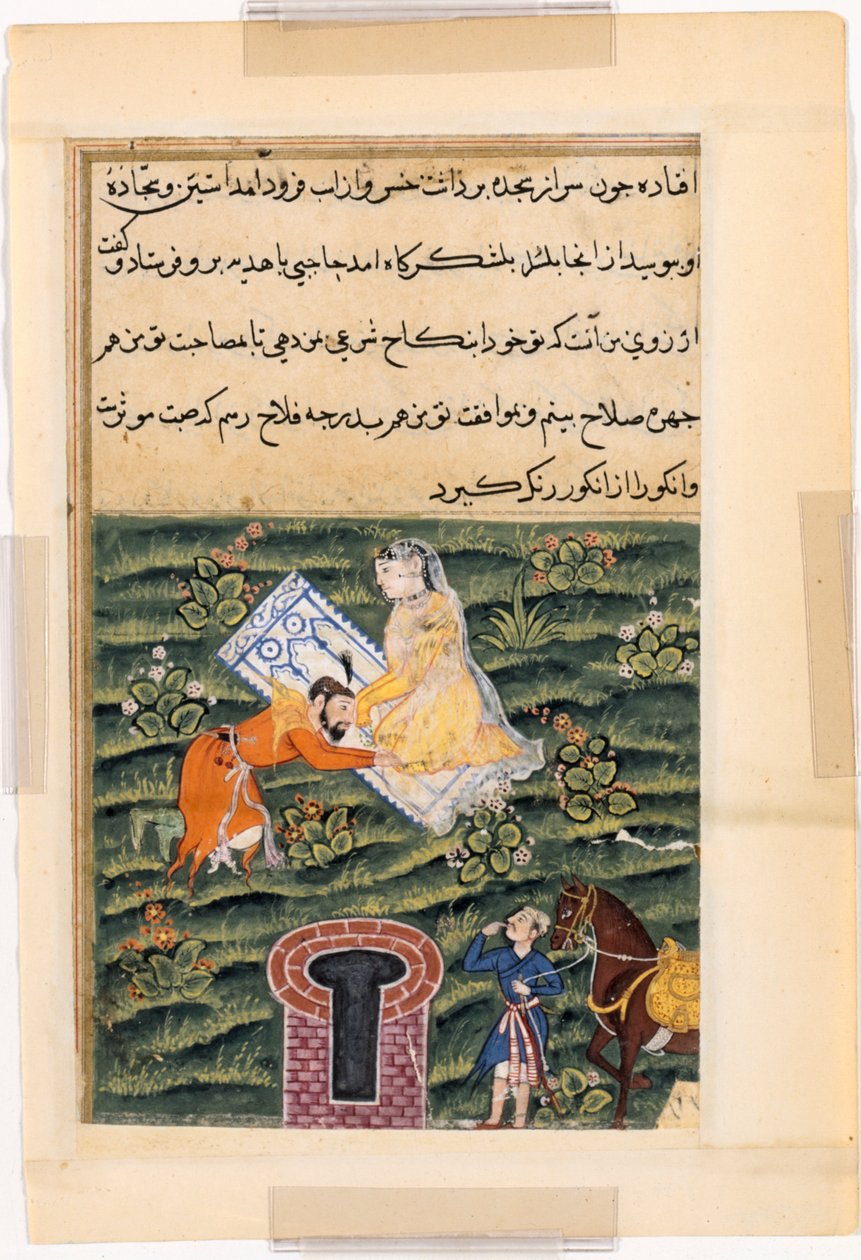 افتاده جون سر از سجده برداشت خسرو از اسب فرود آمد آستین و سجّادهٔ
او ببوسید از انجا بلشکرکاه امد حاجبی با هدیه برو فرستاد و کفت
ارزوی من آنست که تو خود را بنکاح شرعی بمن دهی تا بمصاحبت تو من هم
جهره صلاح بینم و بموافقت تو من هم بدرجه فلاح رسم که صحبت موثرست
وانکور از انکور رنک کیرد